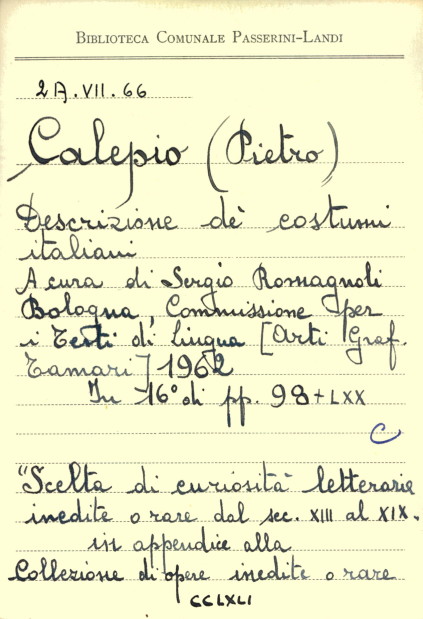 BIBLIOTECA COMUNALE PASSERINI-LANDI
2A.VII.66
Calepio (Pietro)
Descrizione de' costumi
italiani
A cura di Sergio Romagnoli
Bologna, Commissione per
i Testi di lingua [Arti Graf.
Tamari] 1962
In 16° di pp. 98+LXX
C
"Scelta di curiosità letterarie
inedite o rare dal sec. XIII al XIX.
in appendice alla
Collezione di opere inedite o rare
CCLXLI